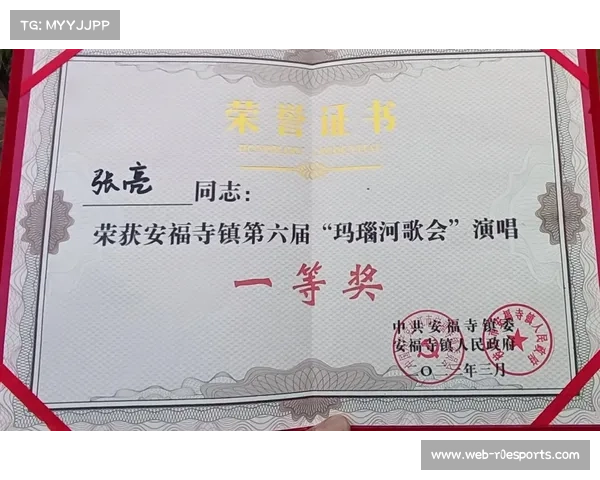 TG: MYYJJPP
荣誉证书
张亮 同志：
荣获安福寺镇第六届“玛瑙河歌会”演唱
一等奖
中共安福寺镇委
安福寺镇人民政府
年三月
www.web-r0esports.com